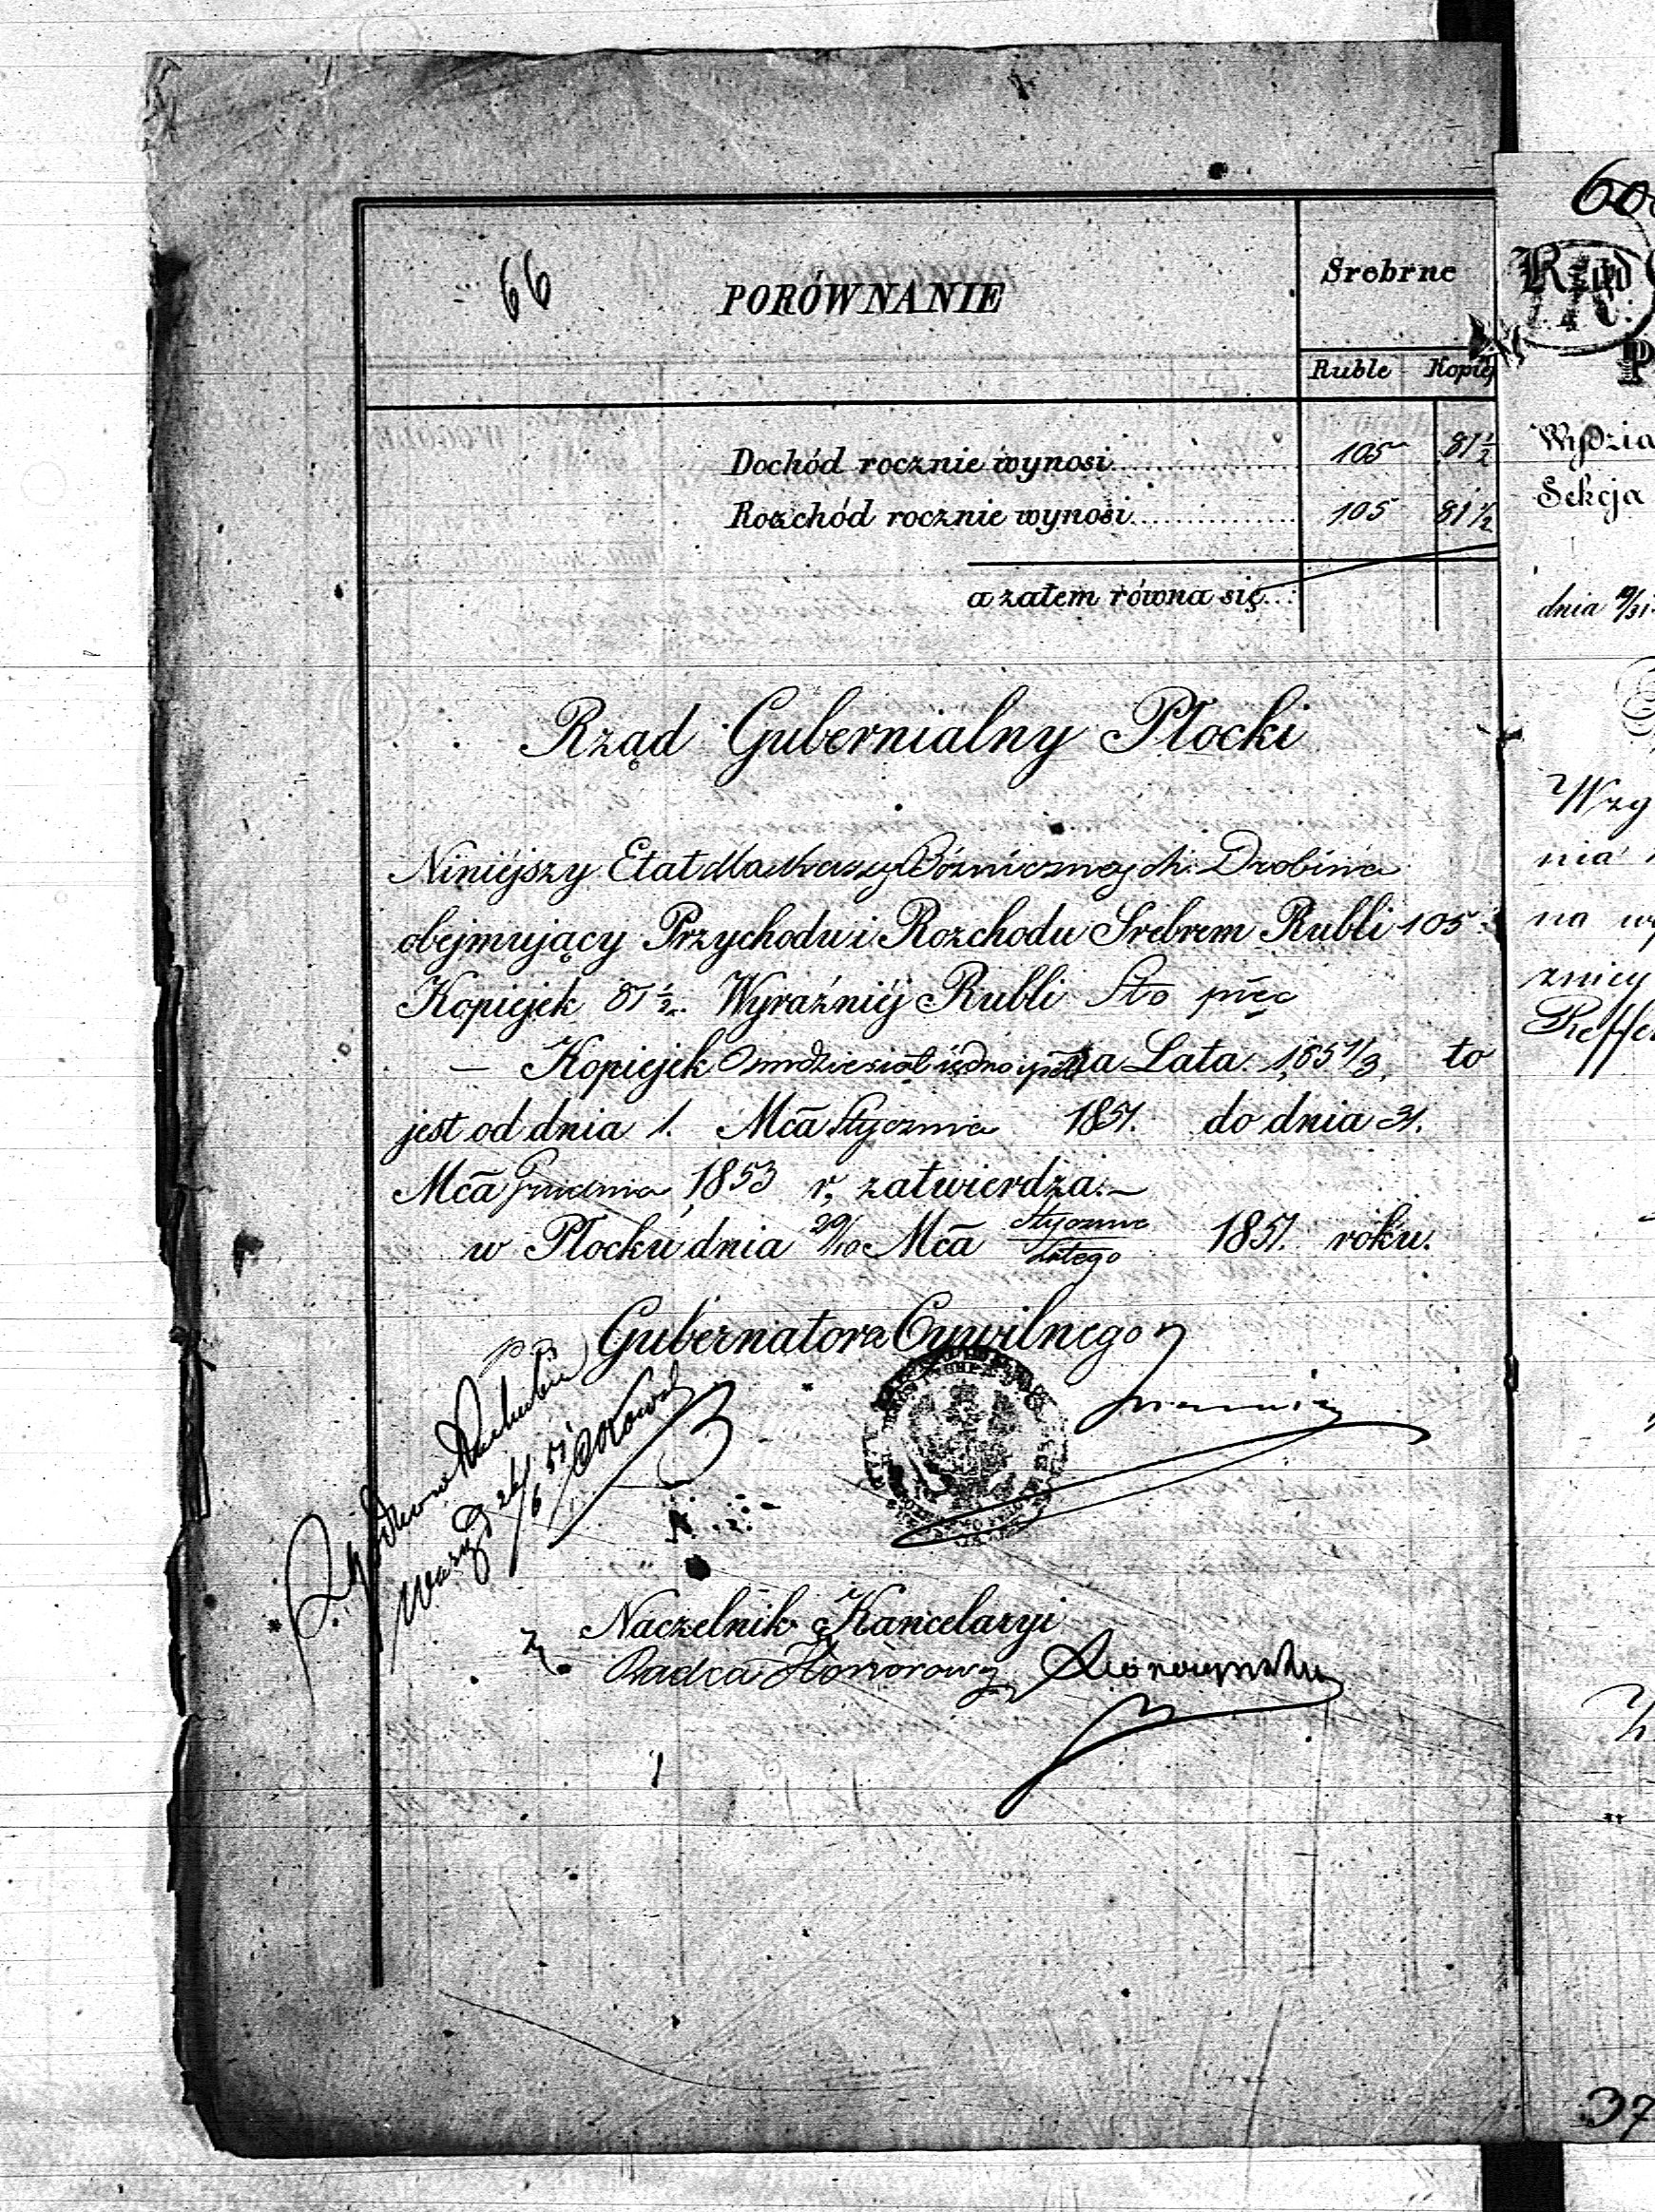 66
PORÓWNANIE
Srebrne
Ruble Kopiej
Dochód rocznie wynosi 105 81½
Rozchód rocznie wynosi 105 81½
a zatem równa się
Rząd Gubernialny Płocki
Niniejszy Etat dla Kassy Bóżniczney M. Drobina
obejmujący Przychodu i Rozchodu Srebrem Rubli 105
Kopiejek 81½. Wyraźniéj Rubli Sto pięć
— Kopiejek Ośmdziesiąt jedno i pół na Lata 1851/3, to
jest od dnia 1. Mca Stycznia 1851. do dnia 31.
Mca Grudnia 1853 r, zatwierdza.—
w Płocku dnia 29/10 Mca Stycznia/Lutego 1851. roku.
Gubernatora Cywilnego
Naczelnik Kancelaryi
Radca Honorowy
60
Rząd G
P
Wydzia
Sekcja
dnia
Wzg
nia
na
znicy
37